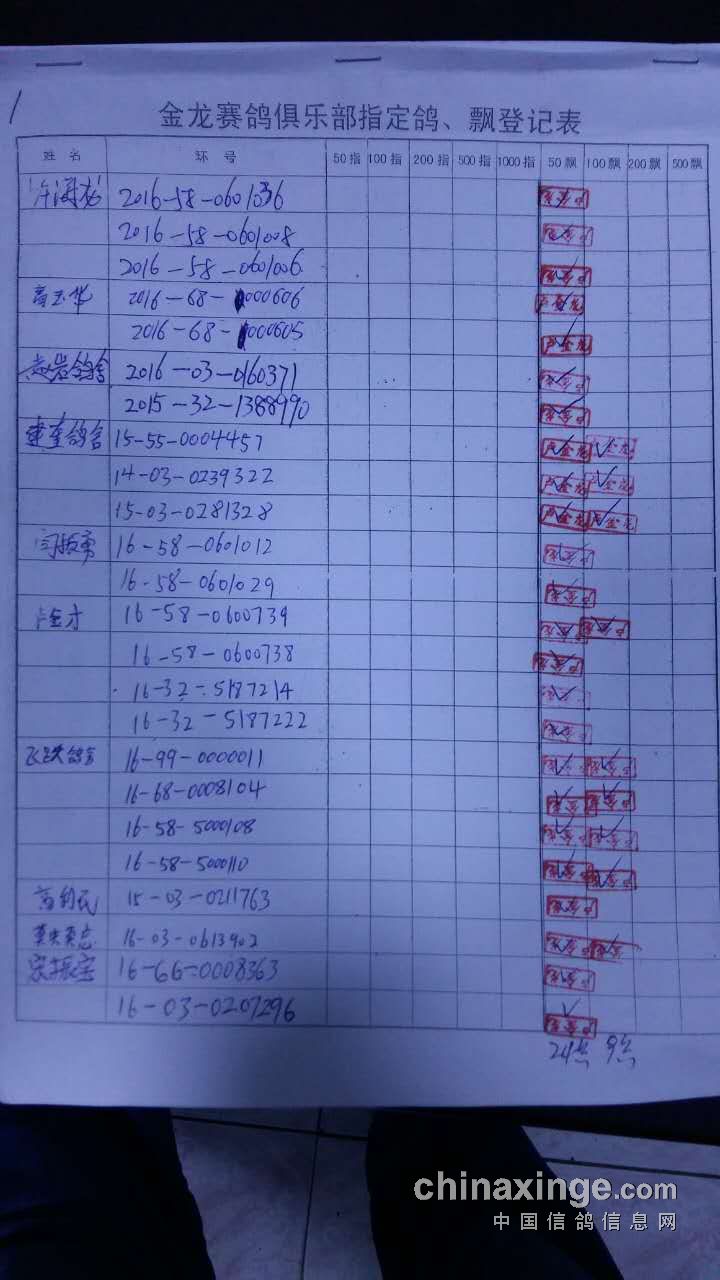 1
金龙赛鸽俱乐部指定鸽、飘登记表
姓名 环号 50指 100指 200指 500指 1000指 50飘 100飘 200飘 500飘
2016-58-0601036
2016-58-0601008
2016-58-0601006
2016-68-1000606
2016-68-1000605
鸽舍 2016-03-0160371
2015-32-1388990
鸽舍 15-55-0004457 卢金龙 卢金龙
14-03-0239322 卢金龙 卢金龙
15-03-0281328 卢金龙 卢金龙
16-58-0601012
16-58-0601029
16-58-0600739
16-58-0600738
16-32-5187214
16-32-5187222
飞跃鸽舍 16-99-0000011
16-68-0008104
16-58-5000108
16-58-5000110
15-03-0211763
16-03-0613902
宋振宝 16-66-0008363
16-03-0207296
24 9
chinaxinge.com
中国信鸽信息网